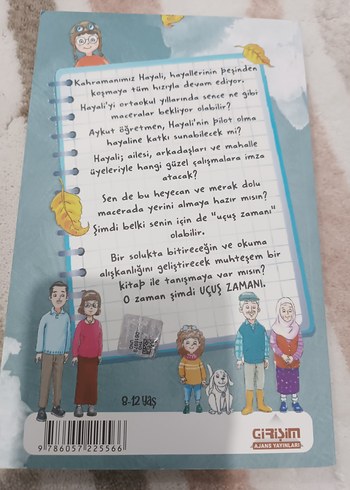 Kahramanımız Hayali, hayallerinin peşinden
koşmaya tüm hızıyla devam ediyor.
Hayali'yi ortaokul yıllarında sence ne gibi
maceralar bekliyor olabilir?
Aykut öğretmen, Hayali'nin pilot olma
hayaline katkı sunabilecek mi?
Hayali; ailesi, arkadaşları ve mahalle
üyeleriyle hangi güzel çalışmalara imza
atacak?
Sen de bu heyecan ve merak dolu
macerada yerini almaya hazır mısın?
Şimdi belki senin için de "uçuş zamanı"
olabilir.
Bir solukta bitireceğin ve okuma
alışkanlığını geliştirecek muhteşem bir
kitap ile tanışmaya var mısın?
O zaman şimdi UÇUŞ ZAMANI.
8-12 Yaş
9 786057 225566
GİRİŞİM
AJANS YAYINLARI